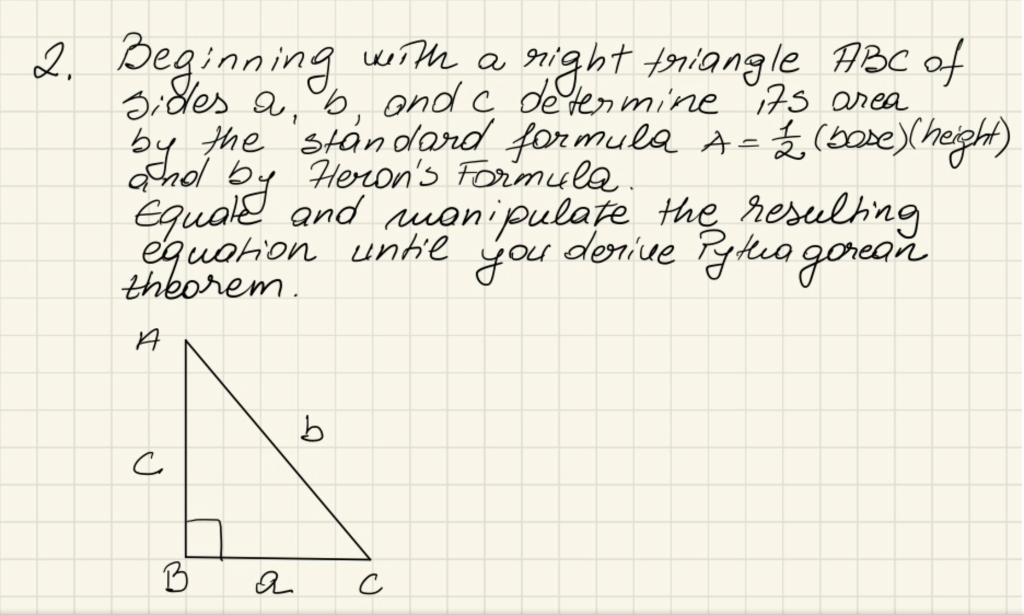 2. Beginning with a right triangle ABC of
sides a, b, and c determine its area
by the standard formula A = 1/2 (base)(height)
and by Heron's Formula.
Equate and manipulate the resulting
equation until you derive Pythagorean
theorem.
A
b
c
B a C